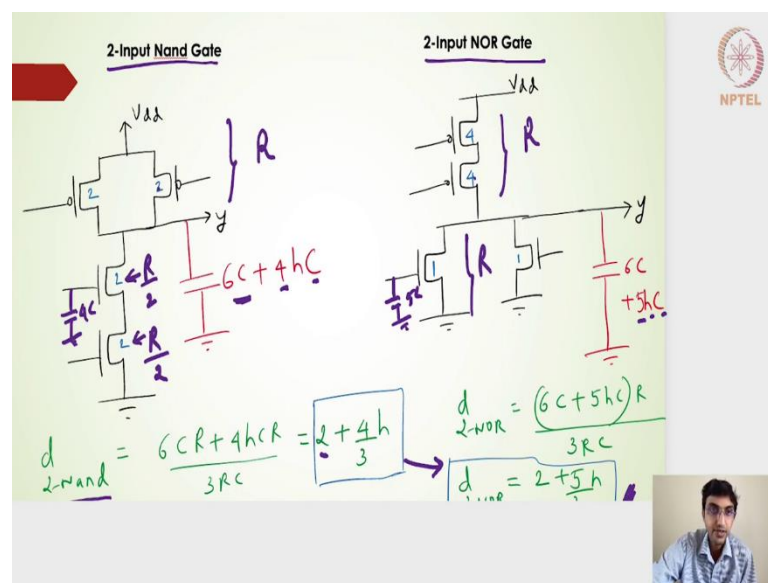 2-Input Nand Gate
2-Input NOR Gate
NPTEL
Vdd
2
2
R
y
2
R/2
2
R/2
4C
6C + 4hC
Vdd
4
4
R
y
1
R
1
5C
6C
+5hC
d 2-Nand = 6CR + 4hCR / 3RC = 2 + 4h / 3
d 2-NOR = (6C + 5hC)R / 3RC
d = 2 + 5h